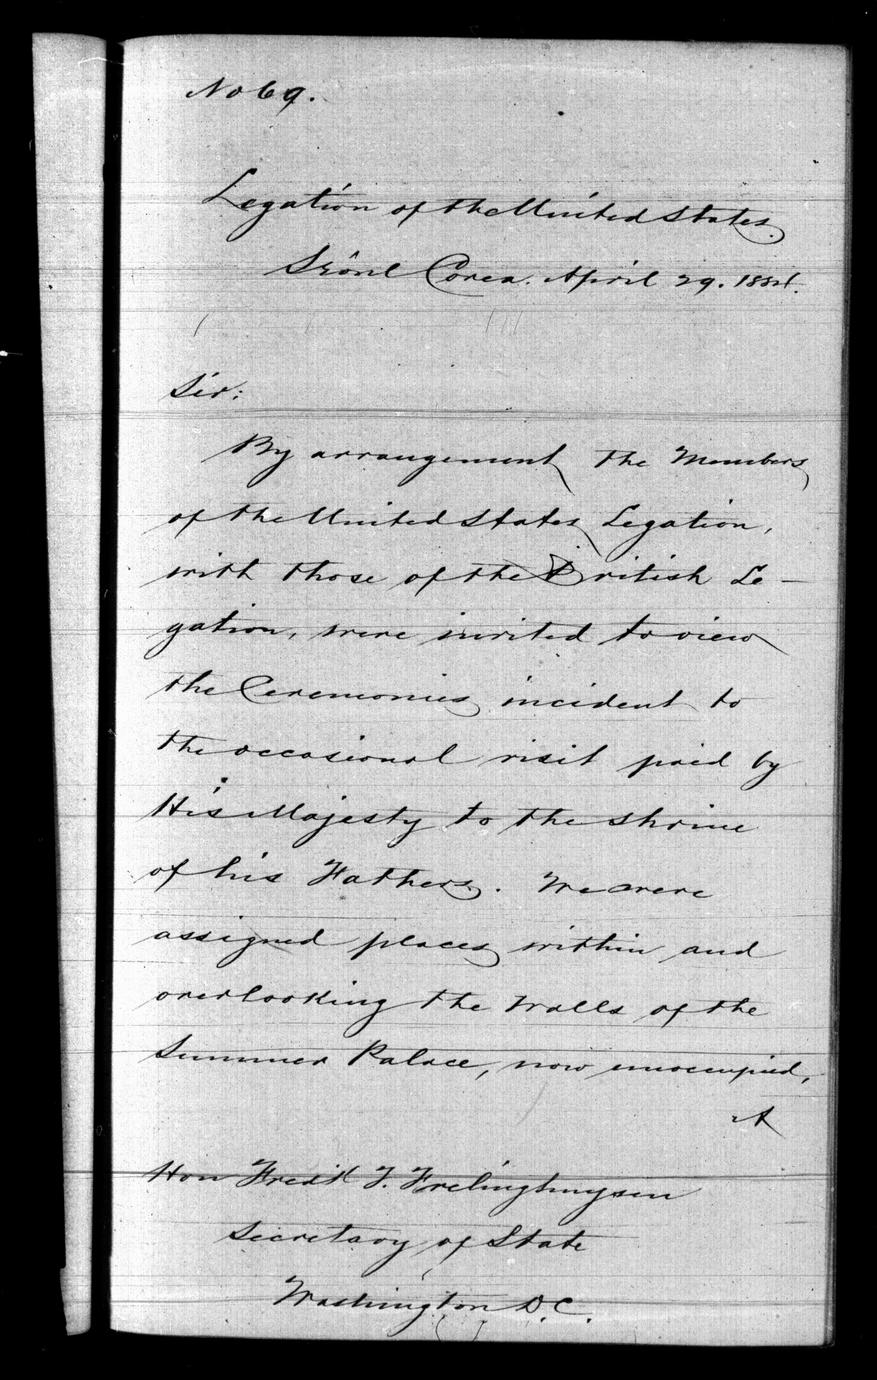 No 69.
Legation of the United States.
Sèoul Corea. April 29. 1884.
Sir:
By arrangement the Members
of the United States Legation,
with those of the British Le-
gation, were invited to view
the Ceremonies incident to
the occasional visit paid by
His Majesty to the shrine
of his Fathers. We were
assigned places within and
overlooking the walls of the
Summer Palace, now unoccupied,
A
Hon Fredk T. Frelinghuysen
Secretary of State
Washington D.C.